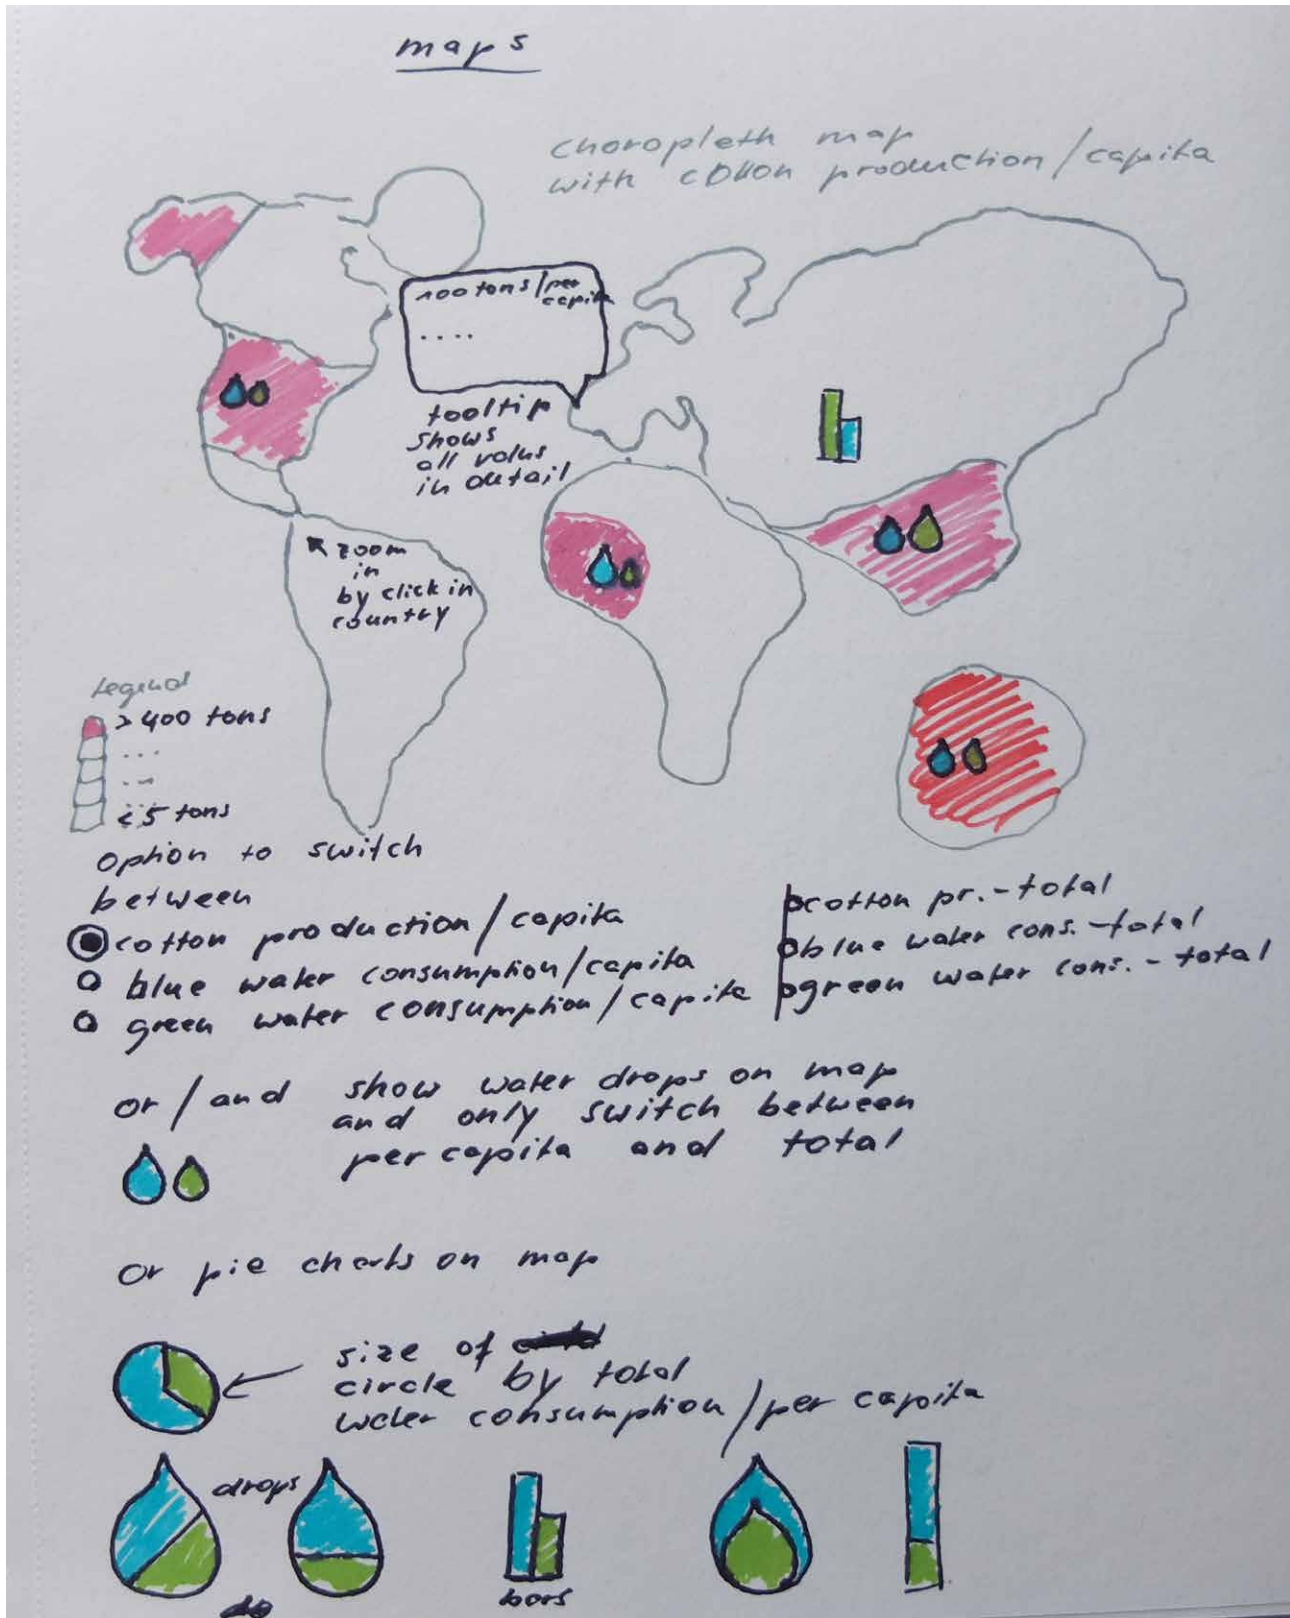 maps
choropleth map
with cotton production/capita
100 tons/per
capita
....
tooltip
shows
all valus
in detail
zoom
in
by click in
country
Legend
> 400 tons
...
...
< 5 tons
option to switch
between
cotton production/capita
blue water consumption/capita
green water consumption/capita
cotton pr.-total
blue water cons.-total
green water cons.-total
or/and show water drops on map
and only switch between
per capita and total
or pie charts on map
size of
circle by total
water consumption/per capita
drops
bars